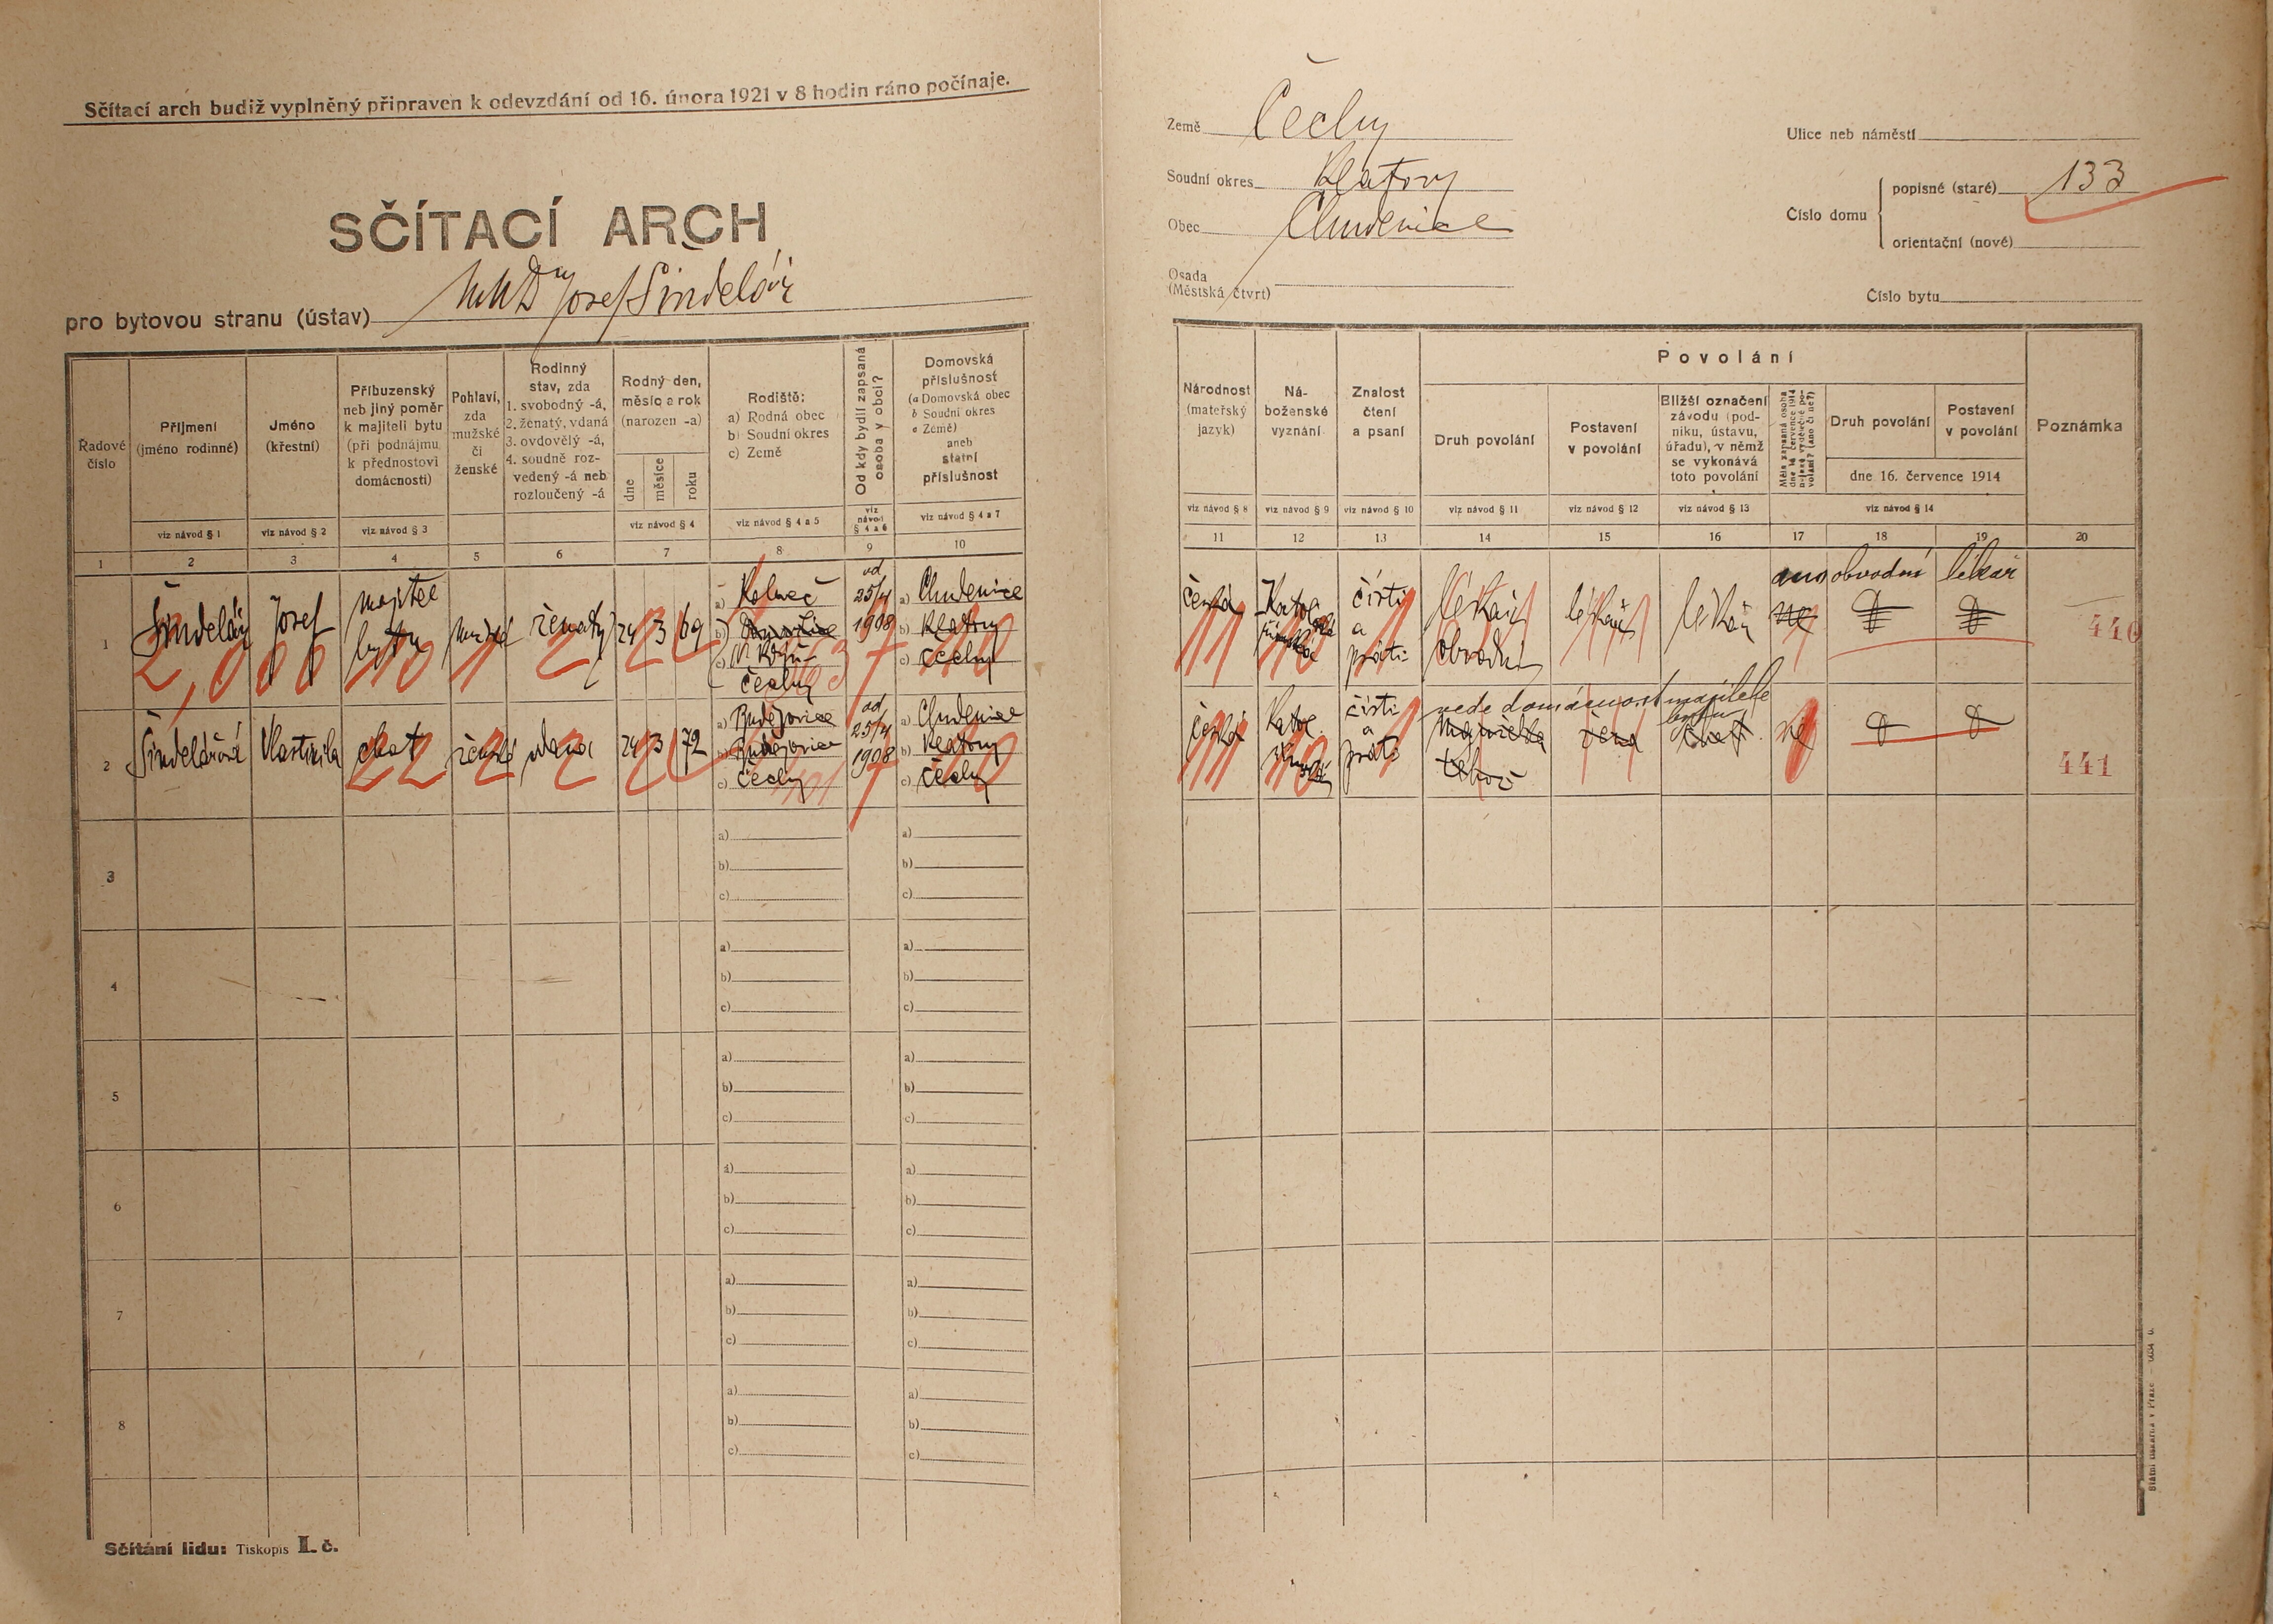 Sčítací arch budiž vyplněný připraven k odevzdání od 16. února 1921 v 8 hodin ráno počínaje.
SČÍTACÍ ARCH
pro bytovou stranu (ústav) MUDr Josef Šindelář
Země Čechy
Soudní okres Klatovy
Obec Chudenice
Osada
(Městská čtvrť)
Ulice neb náměstí
Číslo domu
popisné (staré) 133
orientační (nové)
Číslo bytu
Řadové
číslo
Příjmení
(jméno rodinné)
viz návod § 1
Jméno
(křestní)
viz návod § 2
Příbuzenský
neb jiný poměr
k majiteli bytu
(při podnájmu
k přednostovi
domácnosti)
viz návod § 3
Pohlaví,
zda
mužské
či
ženské
Rodinný
stav, zda
1. svobodný -á,
2. ženatý, vdaná
3. ovdovělý -á,
4. soudně roz-
vedený -á neb
rozloučený -á
Rodný den,
měsíc a rok
(narozen -a)
dne
měsíce
roku
viz návod § 4
Rodiště:
a) Rodná obec
b) Soudní okres
c) Země
viz návod § 4 a 5
Od kdy bydlí zapsaná
osoba v obci?
viz
návod
§ 4 a 6
Domovská
příslušnost
(a Domovská obec
b Soudní okres
c Země)
aneb
státní
příslušnost
viz návod § 4 a 7
1 2 3 4 5 6 7 8 9 10
Národnost
(mateřský
jazyk)
viz návod § 8
Ná-
boženské
vyznání
viz návod § 9
Znalost
čtení
a psaní
viz návod § 10
Povolání
Druh povolání
viz návod § 11
Postavení
v povolání
viz návod § 12
Bližší označení
závodu (pod-
niku, ústavu,
úřadu), v němž
se vykonává
toto povolání
viz návod § 13
Měla zapsaná osoba
dne 16. července 1914
Druh povolání
Postavení
v povolání
dne 16. července 1914
viz návod § 14
Poznámka
11 12 13 14 15 16 17 18 19 20
1
Šindelář
Josef
majitel
bytu
mužské
ženatý
24 3 69
a) Koloveč
b)
c)
Čechy
od
25/4
1908
a) Chudenice
b) Klatovy
c) Čechy
česká
čísti
a
psáti
lékař
obvodní
lékař
lékař
ano
ne
obvodní lékař
440
2
Šindelářová
Vlastimila
choť
ženské
vdaná
24 3 72
a) Budějovice
b) Budějovice
c) Čechy
od
25/4
1908
a) Chudenice
b) Klatovy
c) Čechy
česká
čísti
a
psáti
vede domácnost majitele
bytu
žena
ne
441
3
a)
b)
c)
a)
b)
c)
4
a)
b)
c)
a)
b)
c)
5
a)
b)
c)
a)
b)
c)
6
a)
b)
c)
a)
b)
c)
7
a)
b)
c)
a)
b)
c)
8
a)
b)
c)
a)
b)
c)
Sčítání lidu: Tiskopis I. č.